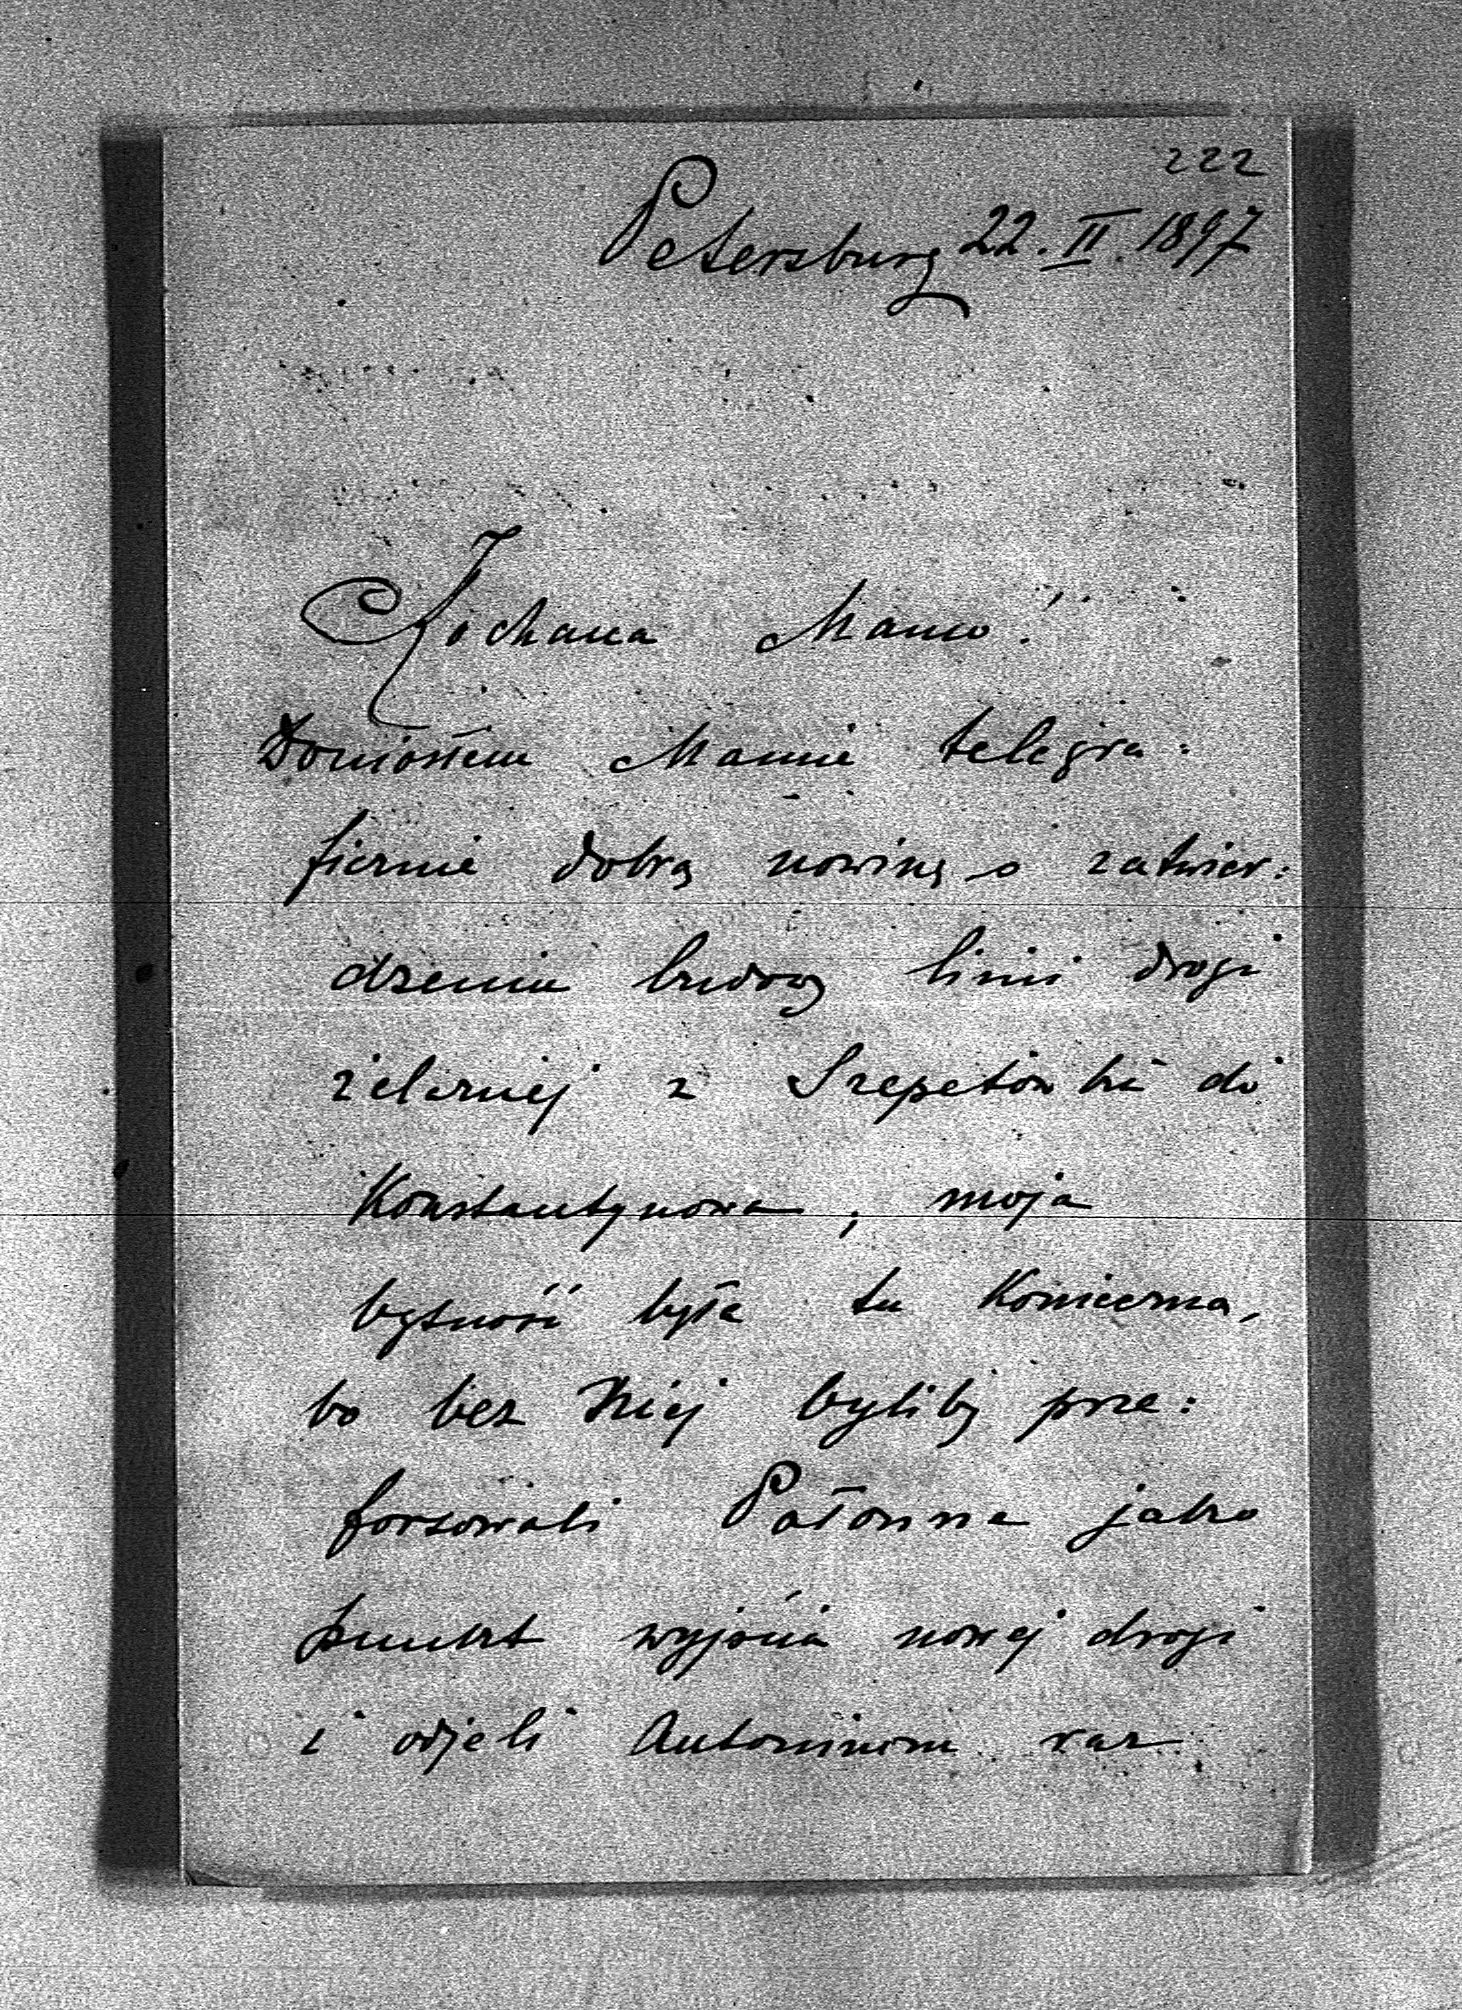 222
Petersburg 22. II. 1897
Kochana Mamo!
Doniosłem Mamie telegra:
ficznie dobrą nowinę o zatwier:
dzeniu budowy linii drogi
żelaznej z Szepetówki do
Konstantynowa; moja
bytność była tu konieczna,
bo bez niej byliby prze:
forsowali Połonne jako
punkt wyjścia nowej drogi
i odjeli Antoninom raz